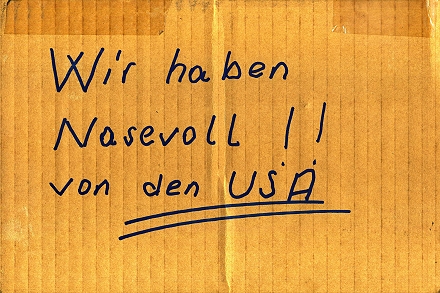 Wir haben
Nasevoll !!
von den USA